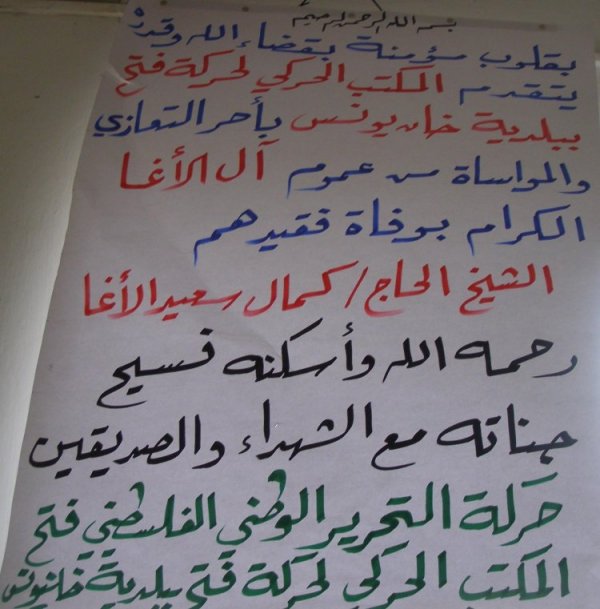 بسم الله الرحمن الرحيم
بقلوب مؤمنة بقضاء الله وقدره
يتقدم المكتب الحركي لحركة فتح
ببلدية خان يونس بأحر التعازي
والمواساة من عموم آل الأغا
الكرام بوفاة فقيدهم
الشيخ الحاج/ كمال سعيد الأغا
رحمه الله وأسكنه فسيح
جناته مع الشهداء والصديقين
حركة التحرير الوطني الفلسطيني فتح
المكتب الحركي لحركة فتح ببلدية خانيونس